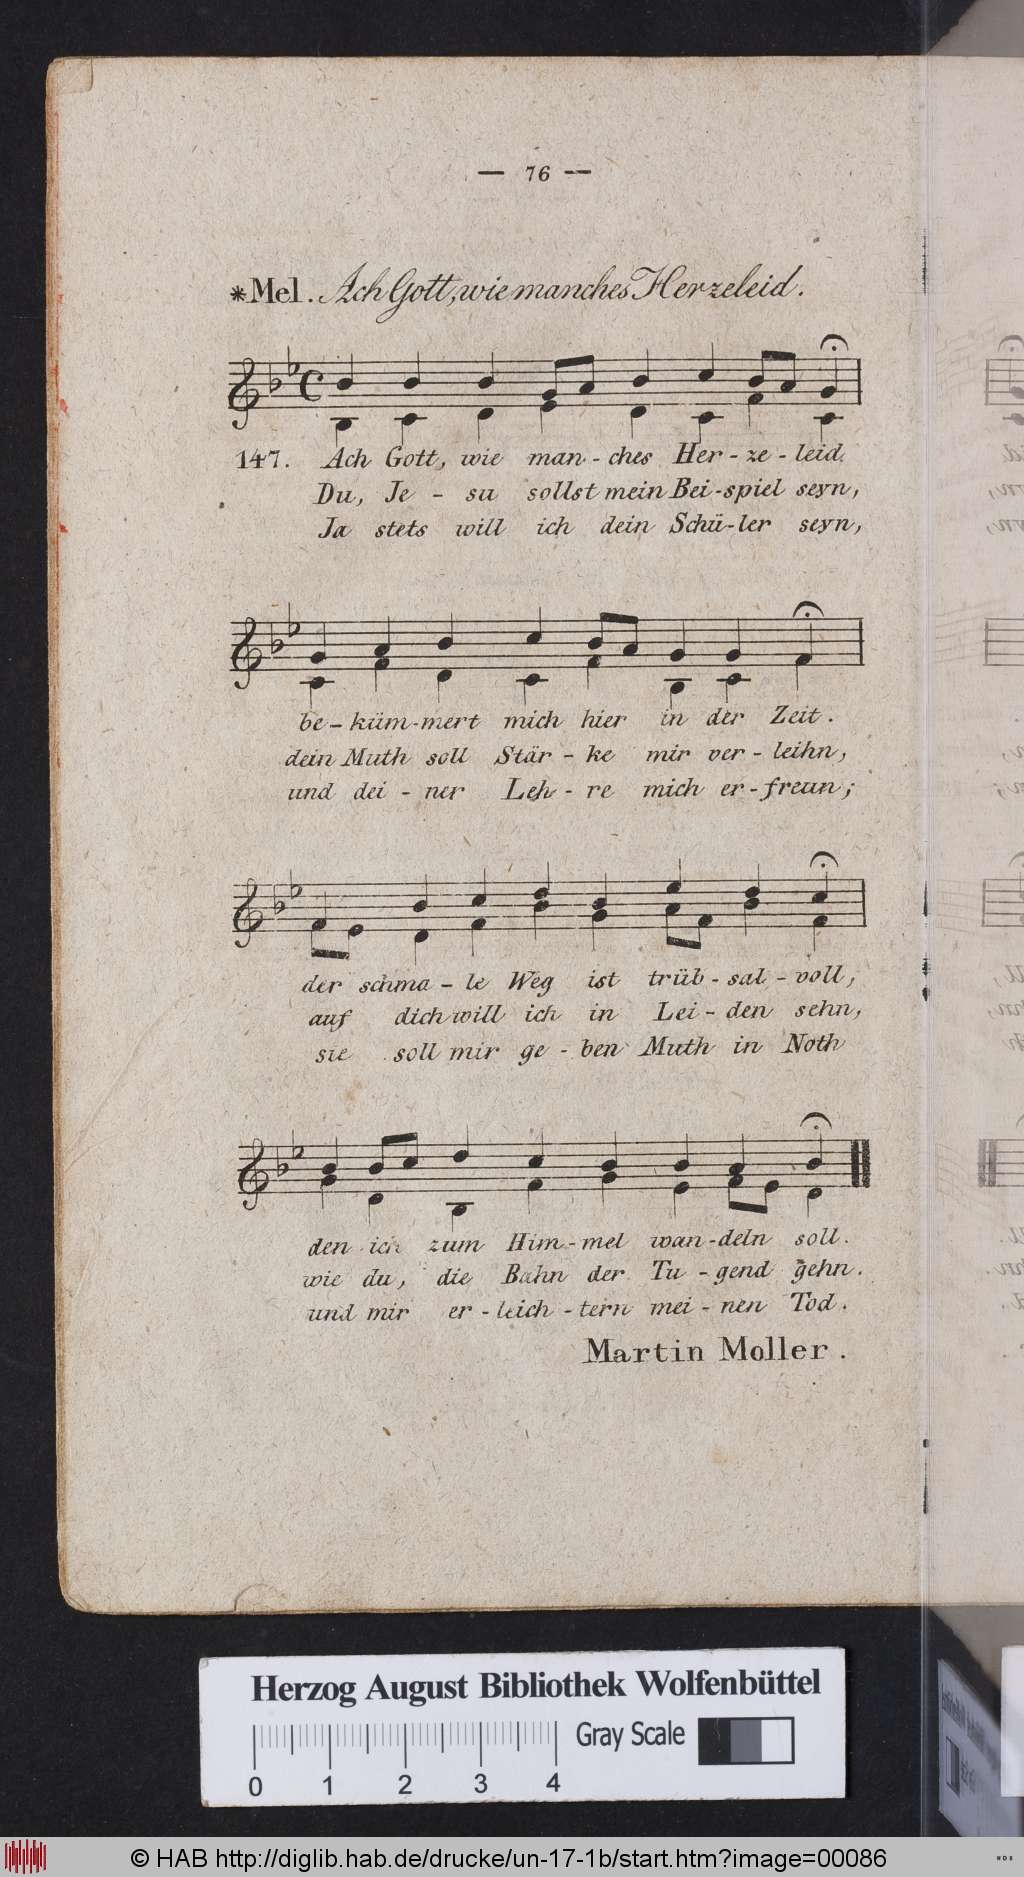 — 76 —
*Mel. Ach Gott, wie manches Herzeleid.
147. Ach Gott, wie man-ches Her-ze-leid.
Du, Je-su sollst mein Bei-spiel seyn,
Ja stets will ich dein Schü-ler seyn,
be-küm-mert mich hier in der Zeit.
dein Muth soll Stär-ke mir ver-leihn,
und dei-ner Leh-re mich er-freun;
der schma-le Weg ist trüb-sal-voll,
auf dich will ich in Lei-den sehn,
sie soll mir ge-ben Muth in Noth
den ich zum Him-mel wan-deln soll.
wie du, die Bahn der Tu-gend gehn.
und mir er-leich-tern mei-nen Tod.
Martin Moller.
Herzog August Bibliothek Wolfenbüttel
Gray Scale
0 1 2 3 4
© HAB http://diglib.hab.de/drucke/un-17-1b/start.htm?image=00086